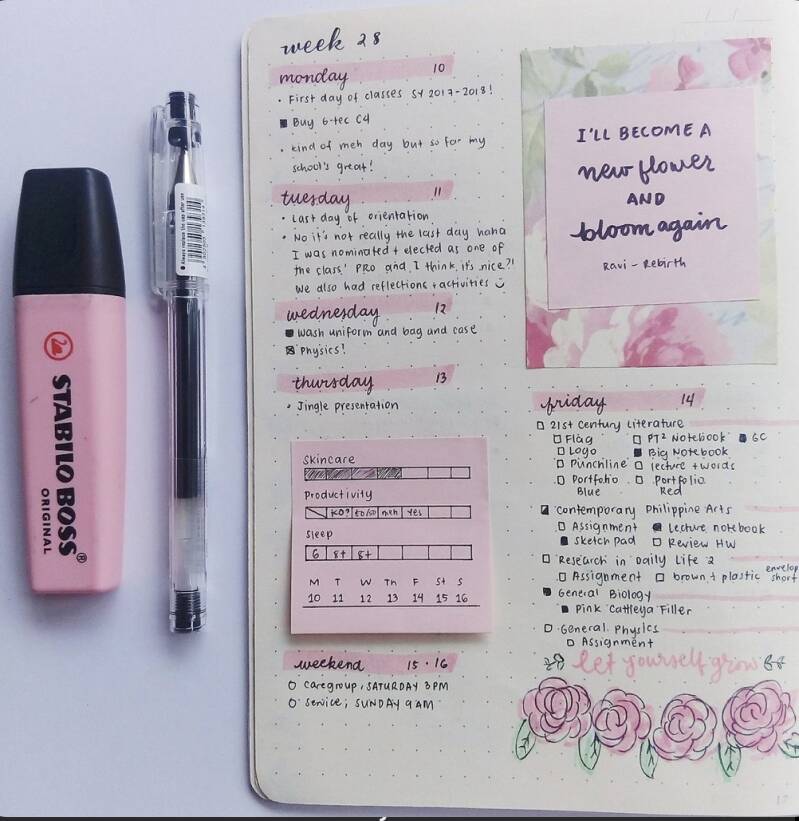 STABILO BOSS®
ORIGINAL
week 28
monday 10
• First day of classes SY 2017-2018!
Buy G-tec C4
• kind of meh day but so far my
school's great!
tuesday 11
• Last day of orientation
• No it's not really the last day haha
I was nominated + elected as one of
the class' PRO and I think it's nice?!
We also had reflections + activities
wednesday 12
Wash uniform and bag and case
Physics!
thursday 13
• Jingle presentation
Skincare
Productivity
KO? so/so meh yes
Sleep
6 8+ 8+
M T W Th F St S
10 11 12 13 14 15 16
weekend 15 • 16
Caregroup, SATURDAY 3PM
Service; SUNDAY 9AM
I'LL BECOME A
new flower
AND
bloom again
Ravi - Rebirth
friday 14
21st Century Literature
Flag PT2 Notebook GC
Logo Big Notebook
Punchline lecture + words
Portfolio Portfolio
Blue Red
Contemporary Philippine Arts
Assignment Lecture notebook
Sketch pad Review HW
Research in Daily Life 2
Assignment brown + plastic envelop
short
General Biology
Pink Cattleya Filler
General Physics
Assignment
let yourself grow